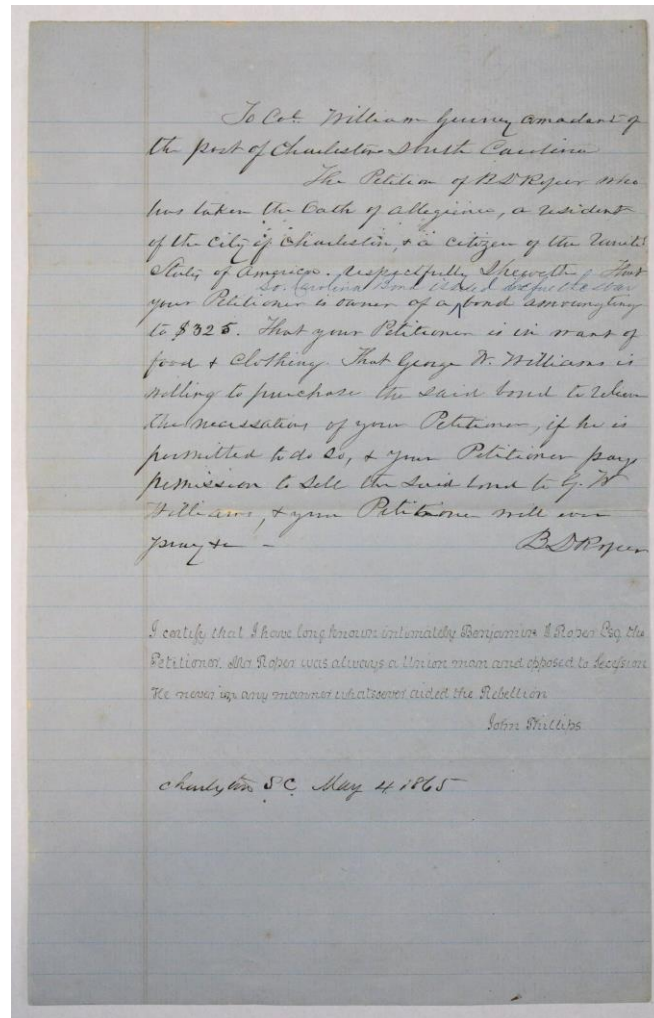 To Col. William Gurney Comadant of
the post of Charleston South Carolina
The Petition of B D Roper who
has taken the Oath of allegience, a resident
of the City of Charleston, & a citizen of the United
States of America. respectfully Sheweth, That
So. Carolina Bond issued before the War
your Petitioner is owner of a ^ bond amoungting
to $325. That your Petitioner is in want of
food & Clothing. That George W. Williams is
willing to purchase the said bond to relieve
the necessaties of your Petitioner, if he is
permitted to do so, & your Petitioner prays
permission to Sell the said bond to G. W
Williams, & your Petitioner will ever
pray &c -
B D Roper
I certify that I have long known intimately Benjamin D Roper Esq. the
Petitioner. Mr Roper was always a Union man and opposed to Secession
He never in any manner whatsoever aided the Rebellion
John Phillips
Charleston S.C. May 4. 1865